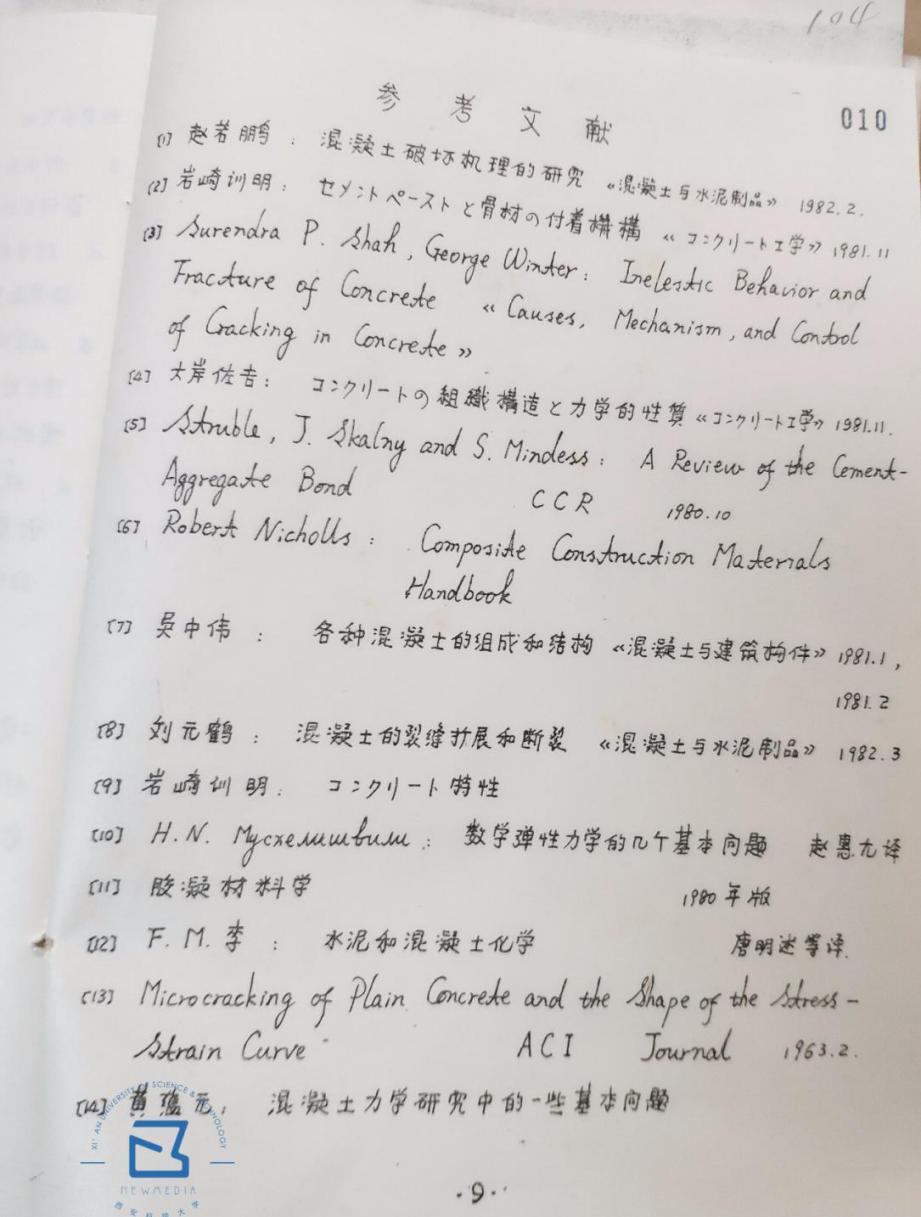 104
010
参考文献
[1] 赵若鹏: 混凝土破坏机理的研究 《混凝土与水泥制品》 1982.2.
[2] 岩崎训明: セメントペーストと骨材の付着構構 《コンクリート工学》 1981.11
[3] Surendra P. Shah, George Winter: Inelestic Behavior and
Fracture of Concrete 《Causes, Mechanism, and Control
of Cracking in Concrete》
[4] 大岸佐吉: コンクリートの組織構造と力学的性質《コンクリート工学》 1981.11.
[5] Struble, J. Skalny and S. Mindess: A Review of the Cement-
Aggregate Bond CCR 1980.10
[6] Robert Nicholls: Composite Construction Materials
Handbook
[7] 吴中伟: 各种混凝土的组成和结构 《混凝土与建筑构件》 1981.1,
1981.2
[8] 刘元鹤: 混凝土的裂缝扩展和断裂 《混凝土与水泥制品》 1982.3
[9] 岩崎训明: コンクリート特性
[10] H.N. Мусхелишвили: 数学弹性力学的几个基本问题 赵惠九译
[11] 胶凝材料学 1980年版
[12] F.M.李: 水泥和混凝土化学 唐明述等译.
[13] Microcracking of Plain Concrete and the Shape of the Stress-
Strain Curve ACI Journal 1963.2.
[14] 黄蕴元: 混凝土力学研究中的一些基本问题
XI'AN UNIVERSITY OF SCIENCE & TECHNOLOGY
NEWMEDIA
西安科技大学
·9·